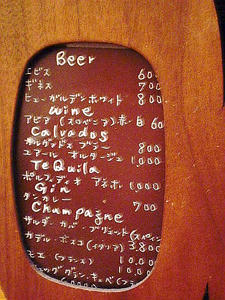 Beer
エビス 600
ギネス 700
ヒューガルデンホワイト 800
wine
アビア (スロベニア) 赤・白 60
Calvados
ブラー 800
エアール オルタージュ 1,000
TeQuila
ポルフィディオ アネホ 1,000
Gin
700
Champagne
サルダー カバ ブリュット (スペイン
カデル・ボスコ (イタリア) 3,800
モエ (フランス) 10.00
10.00